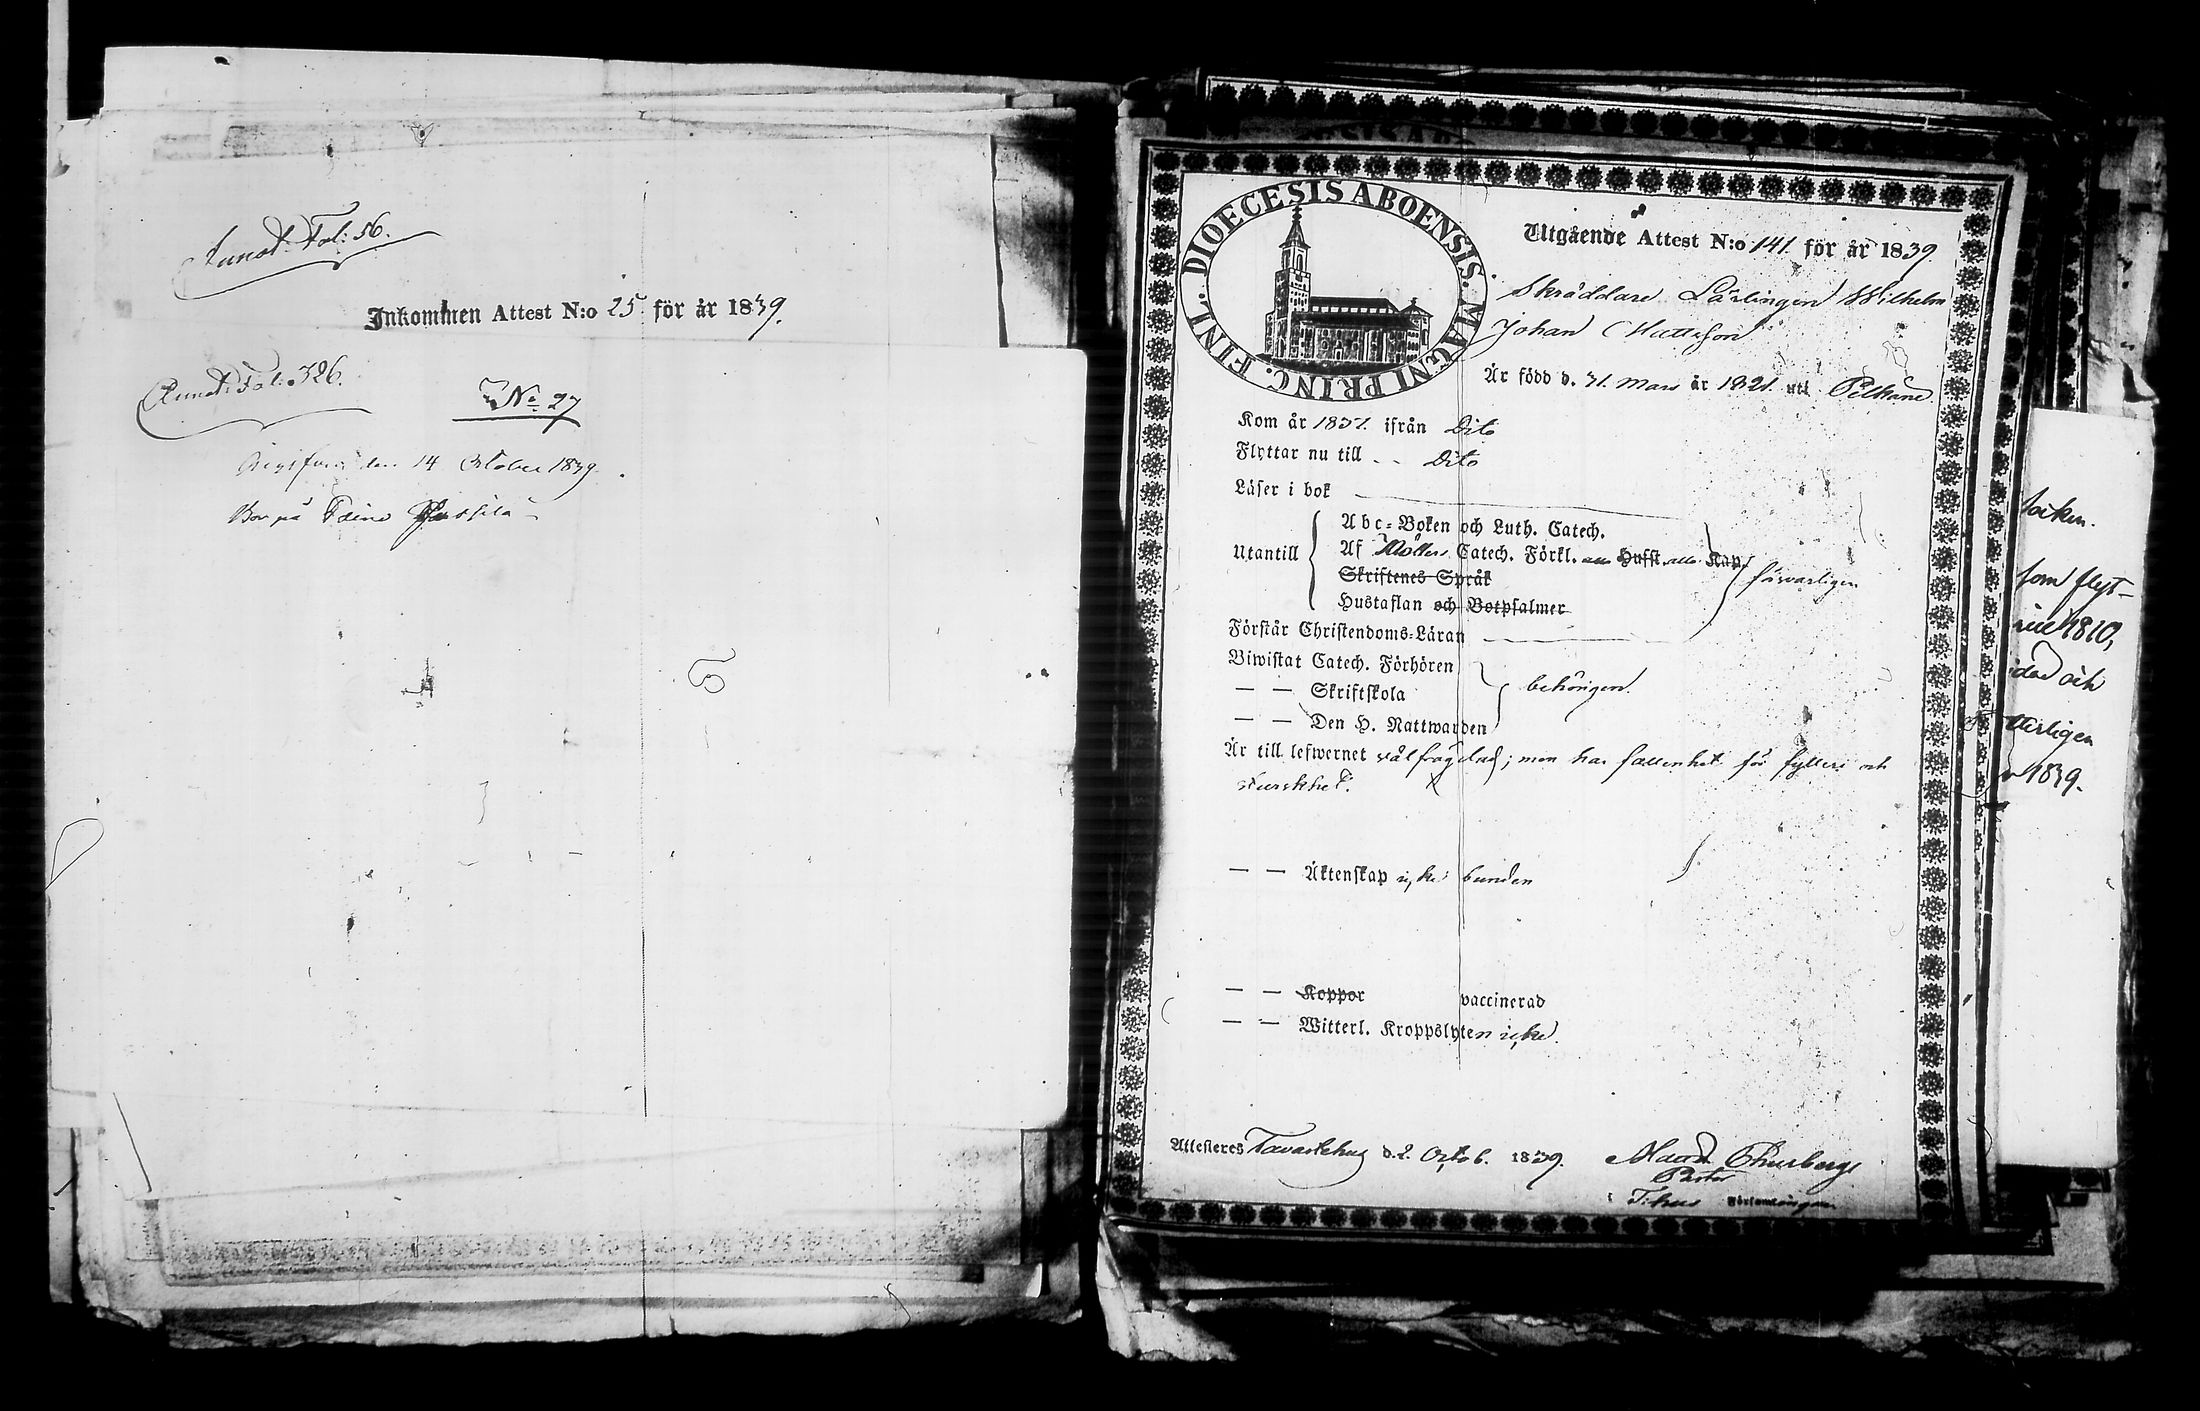 Annot. Fol: 56.
Inkommen Attest N:o 25 för år 1839.
Annot. Fol: 326.
No. 27
den 14 October 1839.
Bor på
DIOECESIS ABOENSIS. MAGNI PRINC. FINL.
Utgående Attest N:o 141 för år 1839.
Skräddare Lärlingen Wilhelm
Johan Mattsson
Är född d. 31. Mars år 1821. uti Pelkäne.
Kom år 1837. ifrån Dito
Flyttar nu till - - Dito
Läser i bok
Utantill
Abc-Boken och Luth. Catech.
Af Möllers Catech. Förkl. Hufst. Kap.
Skriftenes Språk
Hustaflan och Botpsalmer
försvarligen
Förstår Christendoms-Läran
Biwistat Catech. Förhören
— — Skriftskola
— — Den H. Nattwarden
behörigen.
Är till lefwernet välfrägdad; men har fallenhet för fylleri och
sturskhet.
— — Äktenskap icke bunden
— — Koppor vaccinerad
— — Witterl. Kroppslyten icke.
Attesteres Tavastehus d. 2. Octob. 1839.
Pastor
Församlingen
socken.
som flyt-
1810,
och
1839.